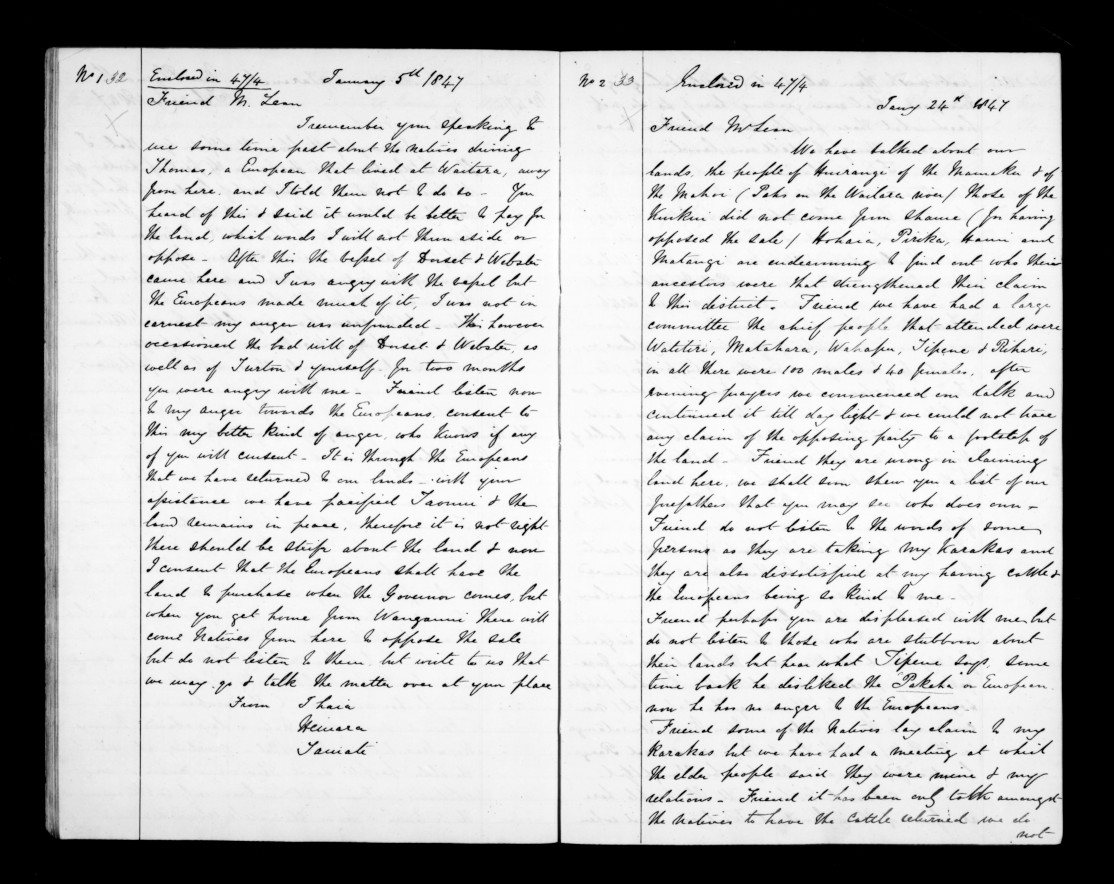 No 1 32
Enclosed in 47/4 January 5th 1847
Friend Mc Lean
I remember your speaking to
me some time past about the natives driving
Thomas, a European that lived at Waitara, away
from here, and I told them not to do so - You
heard of this & said it would be better to pay for
the land, which words I will not turn aside or
oppose - After this the vessel of Dorset & Webster
came here and I was angry with the vessel but
the Europeans made much of it, I was not in
earnest my anger was unfounded - This however
occasioned the bad will of Dorset & Webster, as
well as of Turton & yourself. For two months
you were angry with me - Friend listen now
to my anger towards the Europeans. consent to
this my better kind of anger, who knows if any
of you will consent - It is through the Europeans
that we have returned to our lands - with your
assistance we have pacified & the
land remains in peace, therefore it is not right
there should be strife about the land & now
I consent that the Europeans shall have the
land to purchase when the Governor comes, but
when you get home from Wanganui there will
come Natives from here to oppose the sale
but do not listen to them, but write to us that
we may go & talk the matter over at your place
From Ihaia
Hemara
Tamati
No 2 33
Enclosed in 47/4
Jany 24th 1847
Friend McLean
We have talked about our
lands, the people of Huirangi of the Manuka & of
the Mahoi (Pahs on the Waitara river) those of the
Kuikui did not come from shame (for having
opposed the sale) Hohaia, Pirika, and
Matangi are endeavouring to find out who their
ancestors were that strengthened their claim
to this district. Friend we have had a large
committee the chief people that attended were
Watitiri, Matahara, Wahapu, Tipene & Rihari,
in all there were 100 males & 40 females, after
evening prayers we commenced our talk and
continued it till day light & we could not trace
any claim of the opposing party to a footstep of
the land - Friend they are wrong in claiming
land here, we shall soon shew you a list of our
forefathers that you may see who does own -
Friend do not listen to the words of some
persons as they are taking my Karakas and
they are also dissatisfied at my having cattle &
the Europeans being so kind to me -
Friend perhaps you are displeased with me, but
do not listen to those who are stubborn about
their lands but hear what Tipene says, some
time back he disliked the "Pakeha" or European.
now he has no anger to the Europeans.
Friend some of the Natives lay claim to my
Karakas but we have had a meeting at which
the elder people said they were mine & my
relations - Friend it has been only talk amongst
the natives to have the cattle returned we do
not